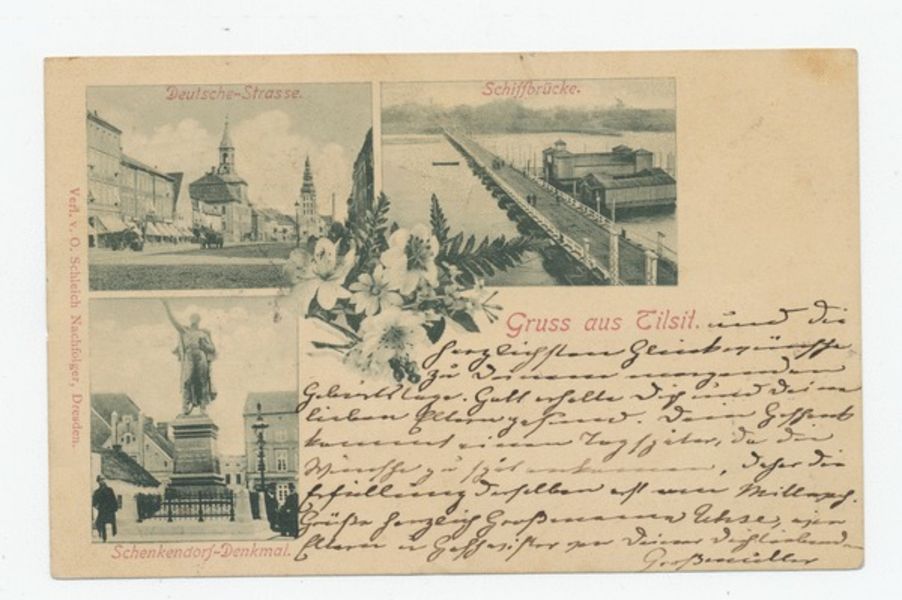 Deutsche-Strasse.
Schiffbrücke.
Verl. v. O. Schleich Nachfolger, Dresden.
Gruss aus Tilsit. und die
herzlichsten Glückwünsche
zu Deinem morgenden
Geburtstage. Gott erhalte Dich und deine
lieben Eltern gesund. Dein Geschenk
kommt einen Tag später, da die
Wünsche zu spät ankommen, daher die
Erfüllung derselben erst am Mittwoch.
Grüße herzlich Großmama
Eltern u Geschwister von Deiner Dich liebenden
Großmutter
Schenkendorf-Denkmal.